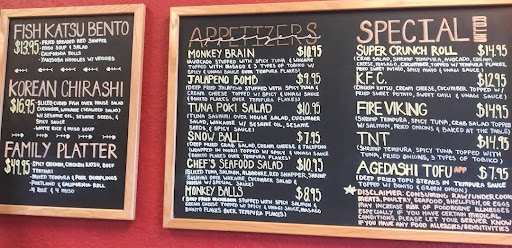 FISH KATSU BENTO
$13.95 - FRIED BREADED RED SNAPPER
- MISO SOUP & SALAD
- CALIFORNIA ROLLS
- YAKISOBA NOODLES W/ VEGGIES
KOREAN CHIRASHI
$16.95 - SLICED/CUBED FISH OVER HOUSE SALAD
(CUCUMBER, WAKAME (SEAWEED SALAD))
W/ SESAME OIL, SESAME SEEDS,
& SPICY SAUCE
- WHITE RICE & MISO SOUP
FAMILY PLATTER
$49.95 - SPICY CHICKEN, CHICKEN KATSU, BEEF
TERIYAKI
- FRIED TEMPURA & PORK DUMPLINGS
- PORTLAND & CALIFORNIA ROLL
- RICE & MISO
APPETIZERS
MONKEY BRAIN $10.95
AVOCADO STUFFED WITH SPICY TUNA & WAKAME
TOPPED WITH MASAGO & 3 TYPES OF TOBIKO W/
SPICY & UNAGI SAUCE OVER TEMPURA FLAKES
JALAPENO BOMB $9.95
(DEEP FRIED JALAPENO STUFFED WITH SPICY TUNA &
CREAM CHEESE TOPPED W/ SPICY & UNAGI SAUCE &
BONITO FLAKES OVER TEMPURA FLAKES)
TUNA POKI SALAD $10.95
(TUNA SASHIMI OVER HOUSE SALAD, CUCUMBER
SALAD, WAKAME W/ SESAME OIL, SESAME
SEEDS, & SPICY SAUCE)
SNOW BALL $7.95
(DEEP FRIED CRAB SALAD, CREAM CHEESE &
WRAPPED IN NORI TOPPED W/ SPICY & UNAGI
SAUCE OVER TEMPURA FLAKES)
CHEF'S SEAFOOD SALAD $10.95
(SLICED TUNA, SALMON, ALBACORE, RED SNAPPER, SHRIMP
SASHIMI OVER WAKAME, CUCUMBER SALAD &
W/ SPICY & UNAGI SAUCE)
MONKEY BALLS $8.95
(DEEP FRIED MUSHROOMS STUFFED WITH SPICY SALMON &
CREAM CHEESE TOPPED W/ SPICY & UNAGI SAUCE, MASAGO
BONITO FLAKES OVER TEMPURA FLAKES)
SPECIAL ROLLS
SUPER CRUNCH ROLL $14.95
(CRAB SALAD, SHRIMP TEMPURA, AVOCADO, CREAM
CHEESE, MASAGO, CUCUMBER, TOPPED W/ TEMPURA FLAKES,
FRIED SWEET POTATO, SPICY MAYO & UNAGI SAUCE)
K.F.C. $12.95
(CHICKEN KATSU, CREAM CHEESE, CUCUMBER TOPPED W/
FRIED SWEET POTATO, SWEET CHILI & UNAGI SAUCE)
FIRE VIKING $14.95
(SHRIMP TEMPURA, SPICY TUNA, CRAB SALAD TOPPED
W/ SALMON, FRIED ONIONS & BAKED AT THE TABLE)
TNT $14.95
(SHRIMP TEMPURA, SPICY TUNA TOPPED W/
TUNA, FRIED ONIONS, 3 TYPES OF TOBIKO)
AGEDASHI TOFU APP $7.95
(DEEP FRIED TOFU STEAKS IN TEMPURA SAUCE
TOPPED W/ BONITO & GREEN ONION)
DISCLAIMER: CONSUMING RAW/UNDERCOOKED
MEATS, POULTRY, SEAFOOD, SHELLFISH, OR EGGS
MAY INCREASE RISK OF FOODBORNE ILLNESS
ESPECIALLY IF YOU HAVE CERTAIN MEDICAL
CONDITIONS. PLEASE LET YOUR SERVER KNOW
IF YOU HAVE ANY FOOD ALLERGIES/SENSITIVITIES